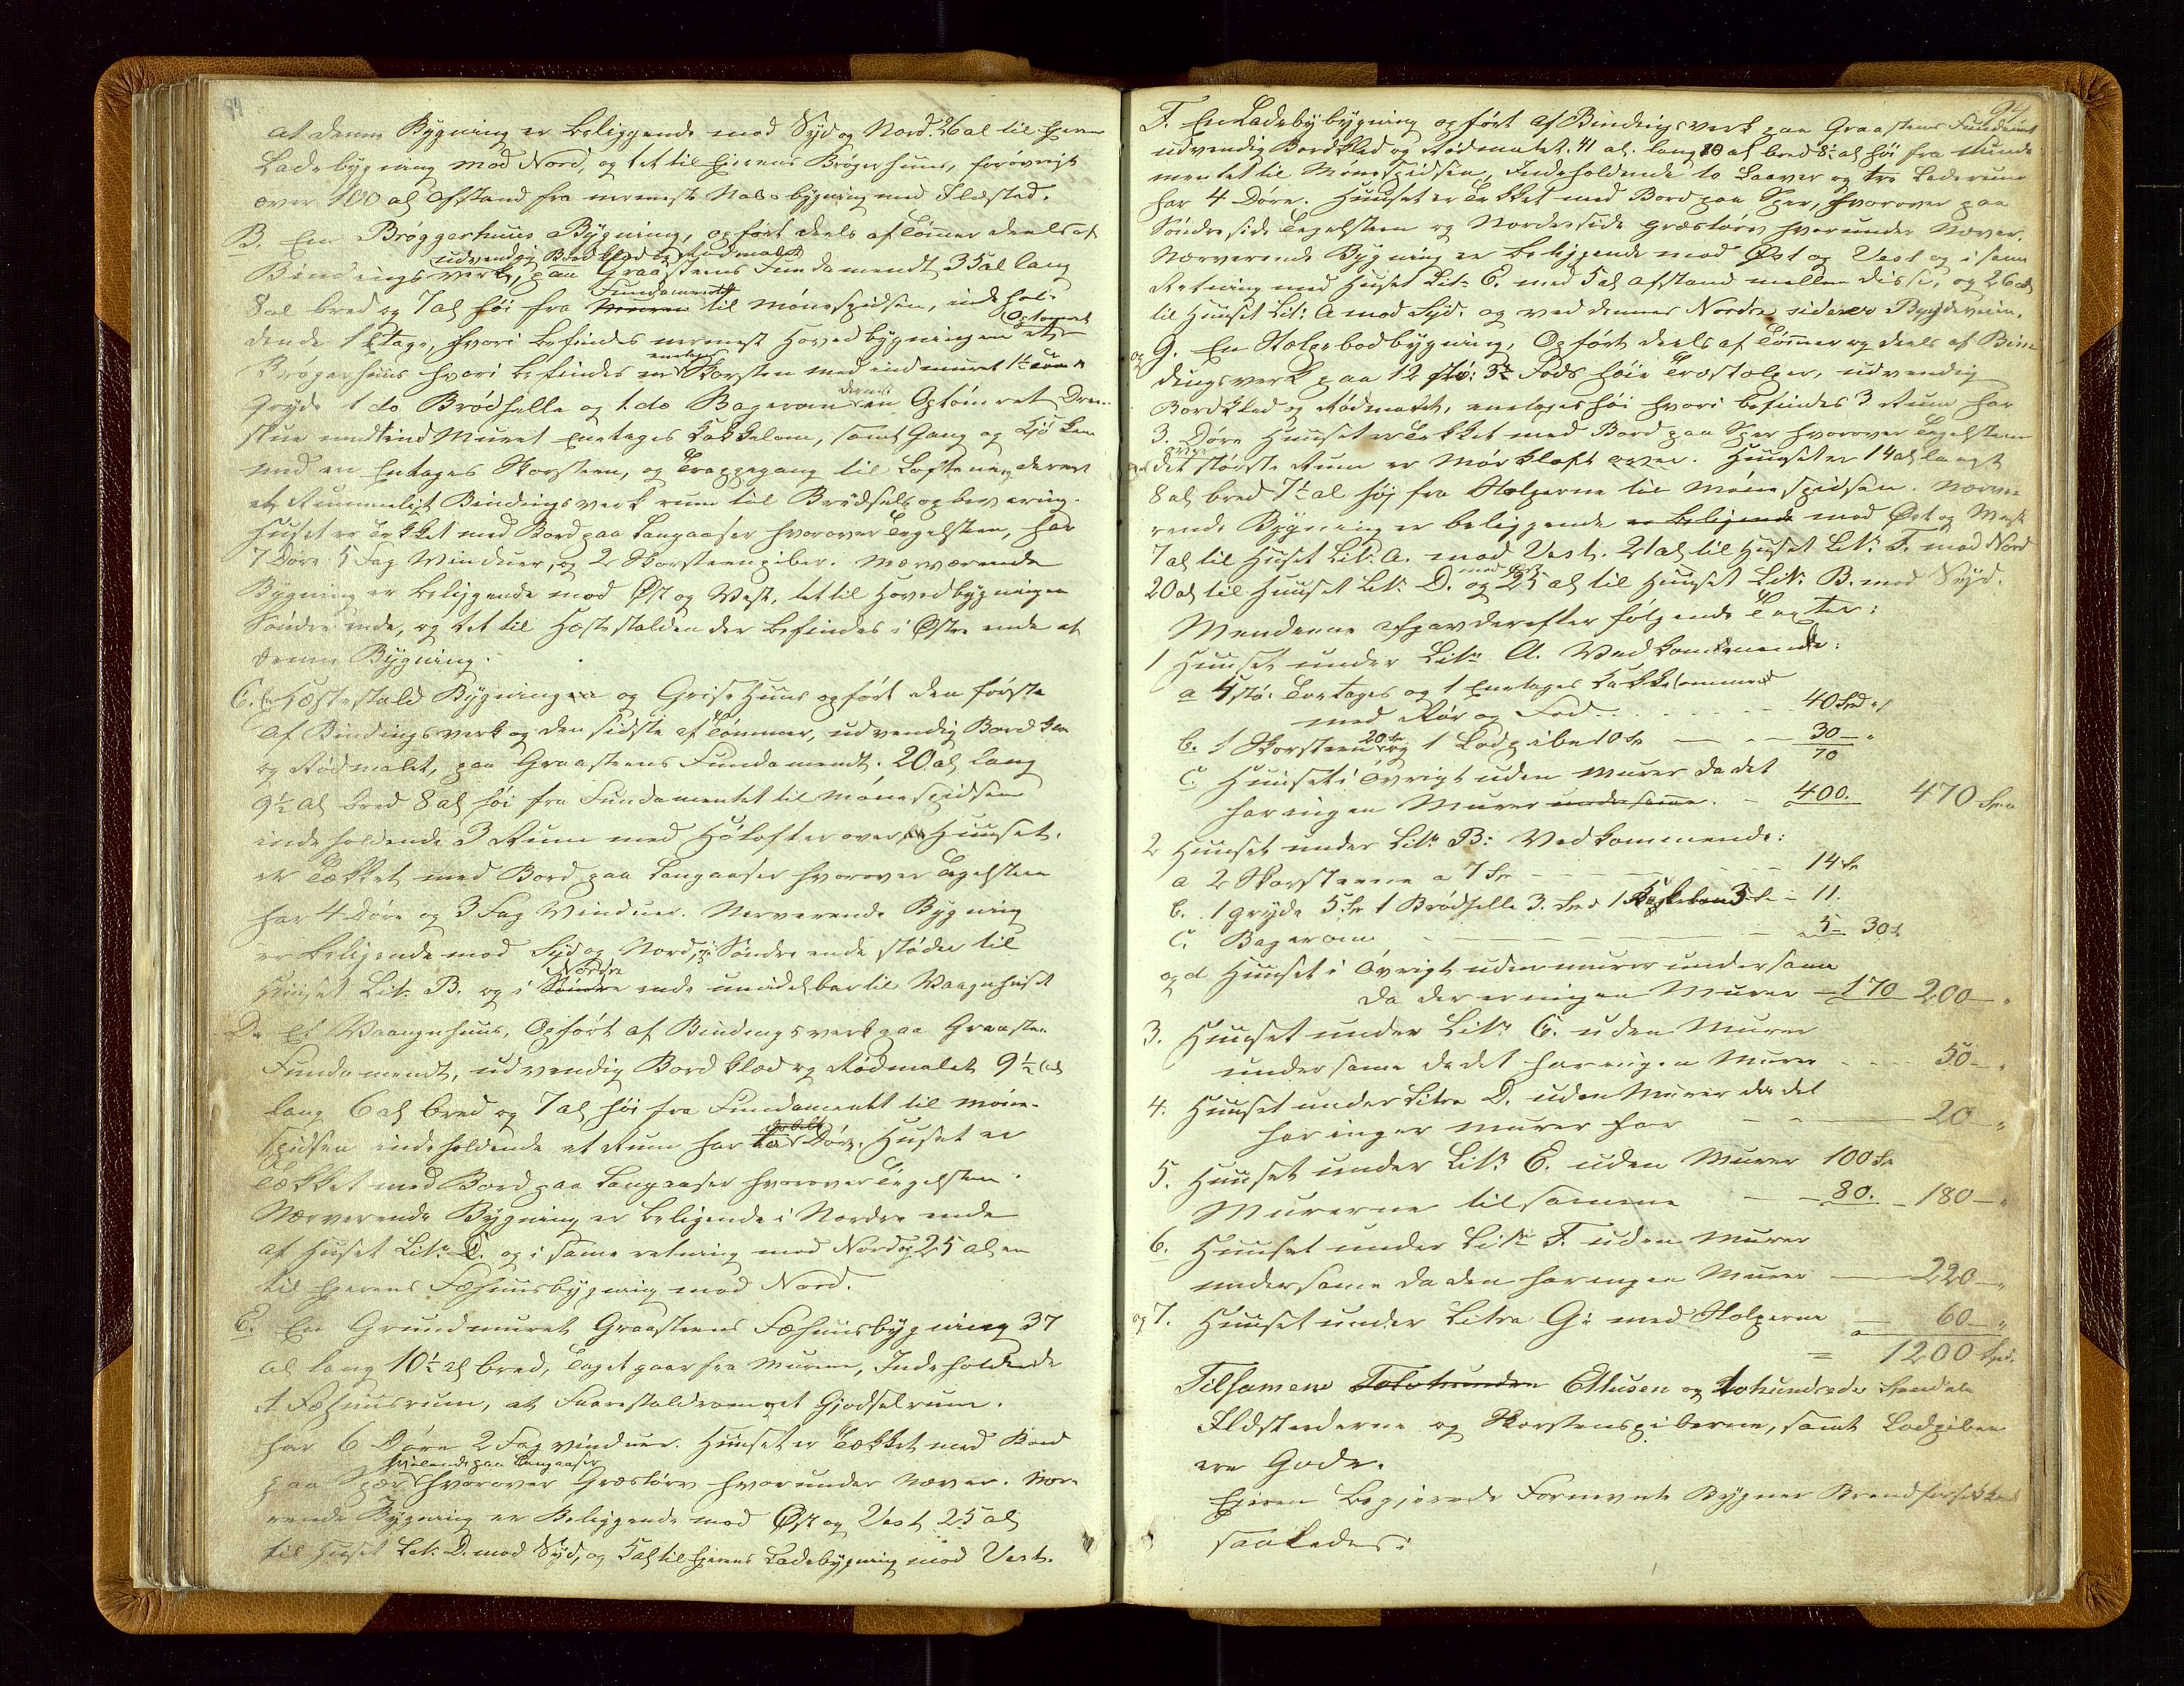 at denne Bygning er beliggende mod Syd og Nord. 26 al til Eierens
Ladebygning mod Nord, og tet til Eierens Brøgerhuus, forøvrigt
over 100 al Afstand fra nermeste Nabobygning med Ildsted.
B. En Brøggerhuus Bygning, opført deels af Tømmer deels af
udvendig Bordklæd og Rødmalet
Bindingsverk, paa Graasteens Fundament 35 al lang
Fundamentet
8 al bred og 7 al høi fra Muren til Mønespidsen, indehol-
dende 1 Etage, hvori befindes nermest Hovedbygningen et Optømret
Brøgerhuus hvori befindes en Skorsten med indmuret 1½ Tønde
Gryde 1 do Brødhelle og 1 do Bagerovn dernest en Optømret Dren-
stue med ind Muret Enetages Kakkelovn, samt Gang og Kjøken
med en Entages Skorsteen, og Trappegang til Lofterne, dernest
et Rummeligt Bindingsverk rum til Brødsels opbevaring.
Huset er Tekket med Bord paa Langaaser hvorover Tegelsteen, har
7 Døre 5 Fag Vinduer, og 2 Skorsteenpiber. Nerværende
Bygning er beliggende mod Øst og Vest, tet til Hovedbygningen
Søndre ende, og tet til Hestestalden der befindes i Østre ende at
denne Bygning.
C. En Hestestald Bygning og Grise Huus opført den første
Af Bindingsverk og den sidste af Tømmer, udvendig Bordklæd
og Rødmalet, paa Graasteens Fundament. 20 al lang
9½ al bred 8 al høi fra Fundamentet til Mønespidsen
indeholdende 3 Rum med Høloft er over Huuset.
er Tækket med Bord paa Langaaser hvorover Tegelsteen
har 4 Døre og 3 Fag Vinduer. Nerverende Bygning
er beligende mod Syd og Nord, i Søndre ende støder til
Nordre
Huuset Litr. B. og i Søndre ende umidelbar til Vaagnhuset
D. Et Vaagnhuus, Opført af Bindingsverk paa Graasten
Fundament, udvendig Bordklæd og Rødmalet 9½ al
lang 6 al bred og 7 al høi fra Fundamentet til Møne-
dobelt
spidsen indeholdende et Rum har to Dør. Huset er
Tækket med Bord paa Langaaser hvorover Tegelsteen.
Nerverende Bygning er beligende i Nordre ende
af Huset Litr. C. og i same retning mod Nord og 25 al
til Eierens Fæhuusbygning mod Nord.
E. En Grundmuret Graasteens Fæhuusbygning 37
al lang 10½ al bred, Taget gaar fra Muren, Indeholdende
et Fæhuusrum, et Faarestaldrom og et Gjødselrum.
har 6 Døre 2 Fag vinduer. Huuset er Tækket med Bord
hvilende paa Langaaser
paa Spær hvorover Græstørv hvorunder Næver. Nær-
rende Bygning er Beliggende mod Øst og Vest 25 al
til Huset Litr. D. mod Syd, og 5 al til Eierens Ladebygning mod Vest.
94
F. En Ladebybygning opført af Bindingsverk paa Graasteens Fundament
udvendig Bordklæd og Rødmalet. 41 al. lang 10 al bred 8½ al høi fra Funda
mentet til Mønespidsen, Indeholdende to Laaver og tre Laderum
har 4 Døre. Huuset er Tekket med Bord paa Spær, hvorover paa
Søndre side Tegelsteen og Nordreside græstørv hvorunder Næver.
Nærværende Bygning er beliggende mod Øst og Vest og i same
Retning med Huset Litr. E. med 5 al afstand mellem disse, og 26 al
til Huuset Litr. A mod Syd. og ved dennes Nordre side er Bygdeveien.
og G. En Stolpebodbygning, Opført deels af Tømmer og deels af Bin
dingsverk paa 12 stk: 3½ Fods høie Træstolper, udvendig
Bordklæd og Rødmalet, enetages høi hvori befindes 3 Rum har
3. Døre Huuset er Tækket med Bord paa Spær hvorover Tegelsteen
det største Rum er Mørkloft over. Huuset er 14 al langt
8 al bred 7½ al høj fra Stolperne til Mønespidsen. Nærve
rende Bygning er beliggende er beligende mod Øst og Vest
7 al til Huset Litr. A. mod Vest. 21 al til Huset Litr. F. mod Nord
mod Øst
20 al til Huuset Litr. D. og 25 al til Huuset Litr. B. mod Syd.
Mendene afgav derefter følgende Taxter:
1 Huuset under Litr. A. Vedkommende:
a 4 stk. Toetages og 1 Enetages Kakkelovnner
med Rør og Fod. 40 Spd "
b. 1 Skorsteen 20 Sp og 1 Lodpibe 10 Sp 30 "
70
c. Huuset i Øvrigt uden Murer da det
har ingen Murer undersame. 400. 470 Spd
2 Huuset under Litr. B: Vedkommende:
a 2 Skorsteene a 7 Sp 14 Sp
b. 1 Gryde 5 Sp 1 Brødhelle 3. Spd 1 Kakkelovn 3 Sp 11.
c. Bagerovn 5 30
og d Huuset i Øvrigt uden murer undersame
da der er ingen Murer 170 200 "
3. Huuset under Litr. C. uden Murer
undersame da det har ingen Murer 50 "
4. Huuset under Litra D. uden Murer da det
har ingen murer har 20 "
5. Huuset under Litr. E. uden Murer 100 Sp
Murerne tilsamene 80. 180 "
6. Huuset under Litr. F. uden Murer
undersame da den har ingen Murer 220 "
og 7. Huuset under Litra G: med Stolperne 60 "
= 1200 Spd.
Tilsamens Tolvhundre Ettusen og tohundrede Spesidaler
Ildstederne og Skorsteenspiberne, samt Lodpiben
ere Gode.
Eieren Begjerede Fornevnte Bygner Brandforsikkret
saaledes: